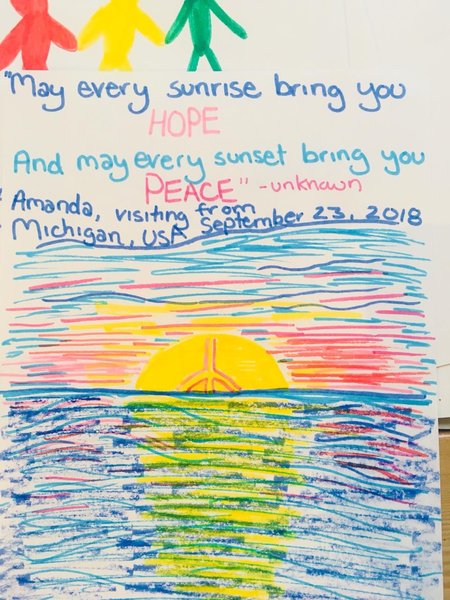 "May every sunrise bring you
HOPE
And may every sunset bring you
PEACE" -unknown
Amanda, visiting from
Michigan, USA September 23, 2018